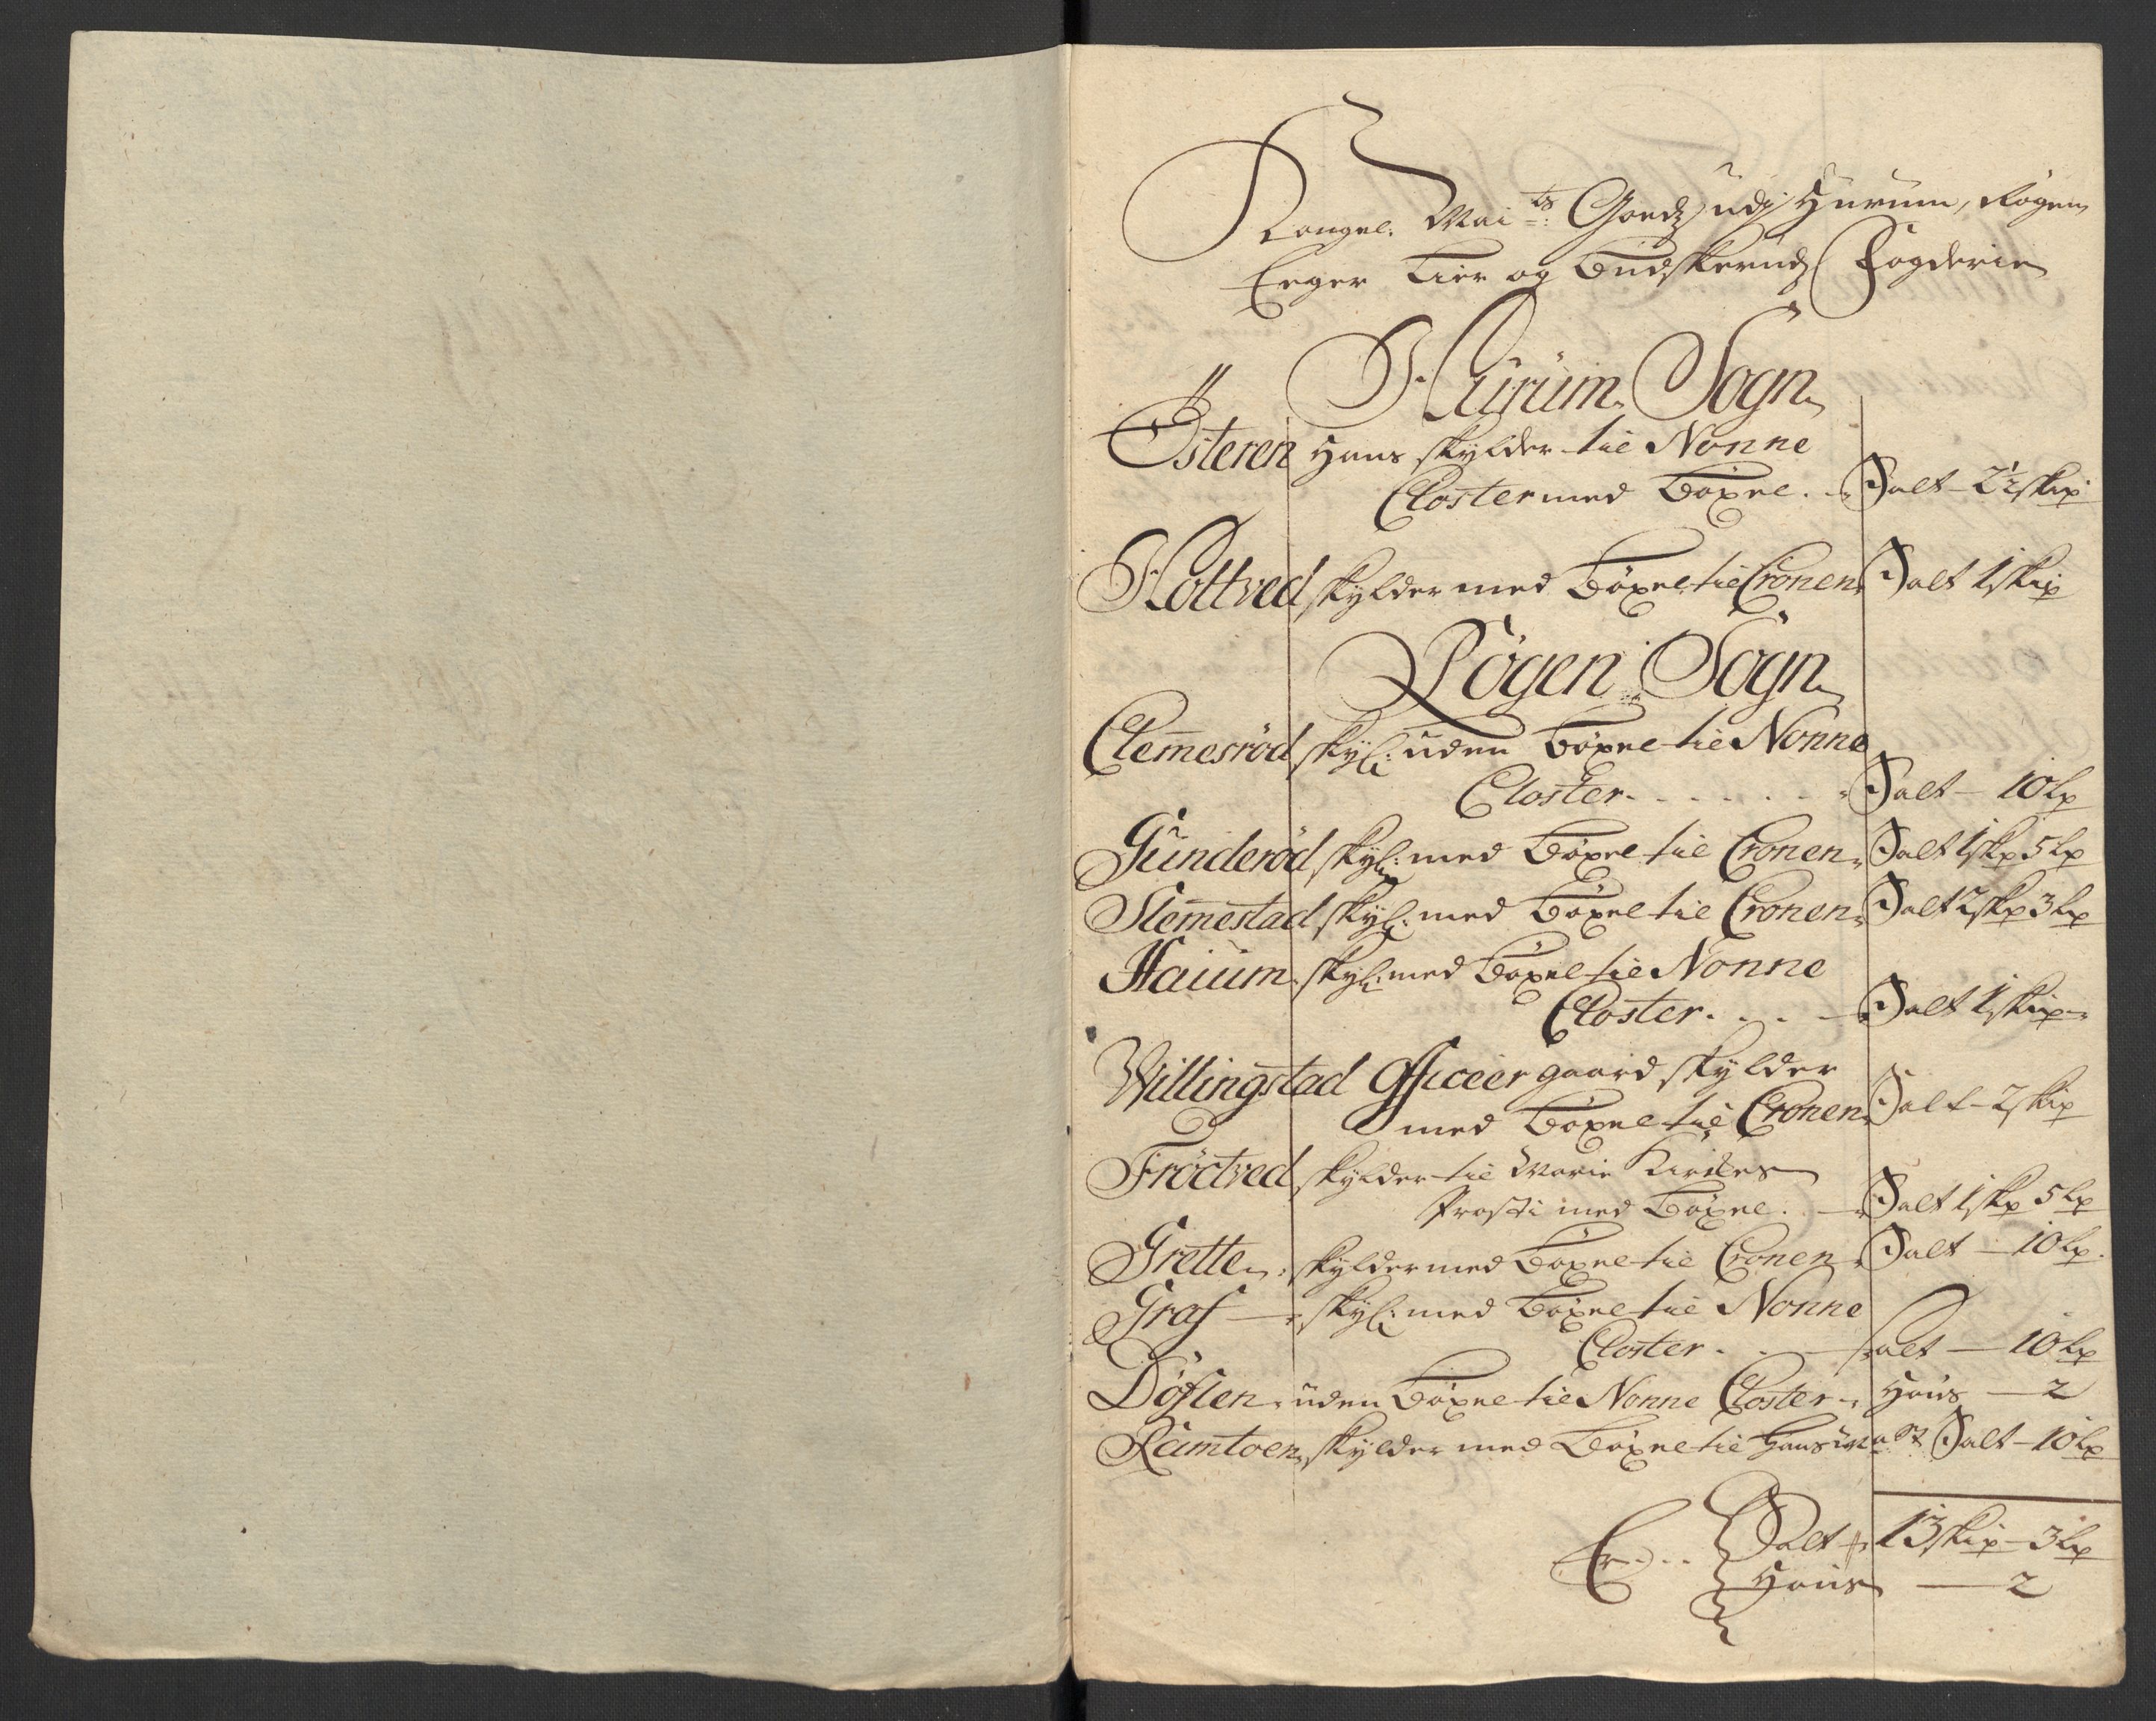 Kongel: Mai:ts Goedz udj Hurum, Røgen,
Eeger Lier og Budskerudz Fogderie
Hurum Sogn
Østeren Hans skylder til Nonne
Closter med Böxel. Salt - 2½ skip
Hottved skylder med Böxel til Cronen Salt 1 skip
Røgen Sogn
Clemesröd skyl: uden Böxel til Nonne
Closter. Salt - 10 Lp
Gunderöd skyl: med Böxel til Cronen Salt 1 skp 5 Lp
Slemestad skyl: med Böxel til Cronen Salt 2 skp 3 Lp
Haium skyl: med Böxel til Nonne
Closter. Salt 1 skip
Willingstad Officeer gaard skylder
med Böxel til Cronen Salt - 2 skip
Fröctved skylder til Marie Kirkes
Prosti med Böxel. Salt 1 skp 5 Lp
Grette skylder med Böxel til Cronen Salt - 10 Lp.
Graf skyl: med Böxel til Nonne
Closter. Salt - 10 Lp
Döflen uden Böxel til Nonne Closter Hous - 2
Ramtoen skylder med Böxel til Hans Maÿt Salt - 10 Lp
Er... Salt 13 skip - 3 Lp
Hous - 2